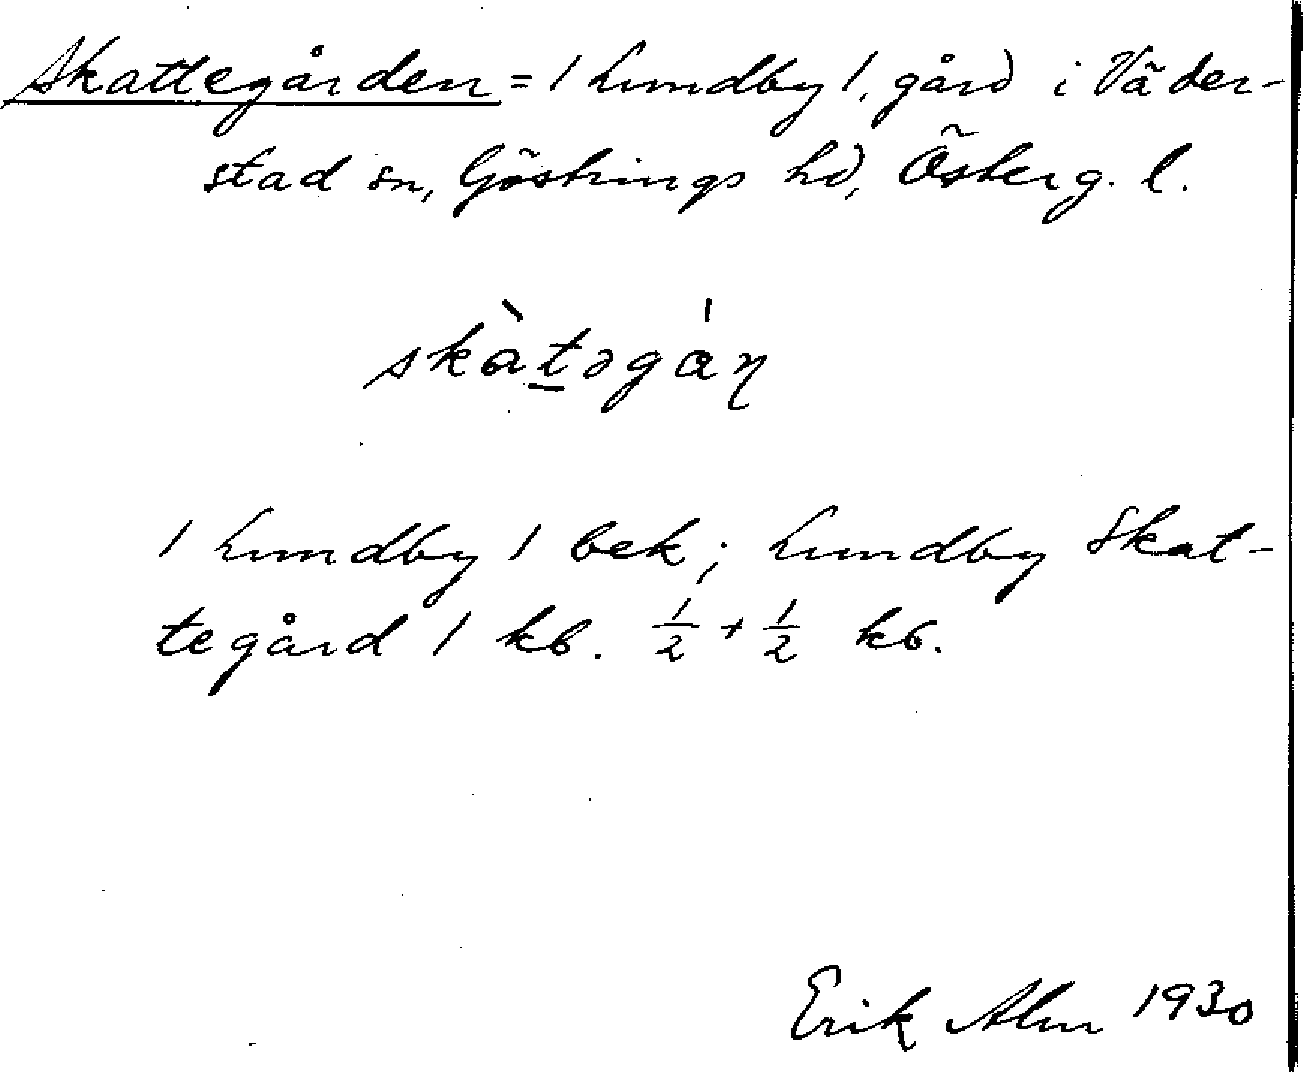 Skattegården = 1 Lundby 1, gård i Väder-
stad sn, Göstrings hd, Österg. l.
skàt̠əgán
1 Lundby 1 bek; Lundby Skat-
tegård 1 kb. ½ + ½ kb.
Erik Alm 1930